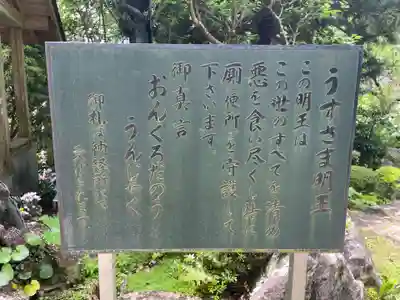 うすさま明王
この明王は
この世のすべてを清め
悪を食い尽くし且た
厠便所を守護して
下さいます。
御真言
おんくろだのう
うんじゃく
御札は